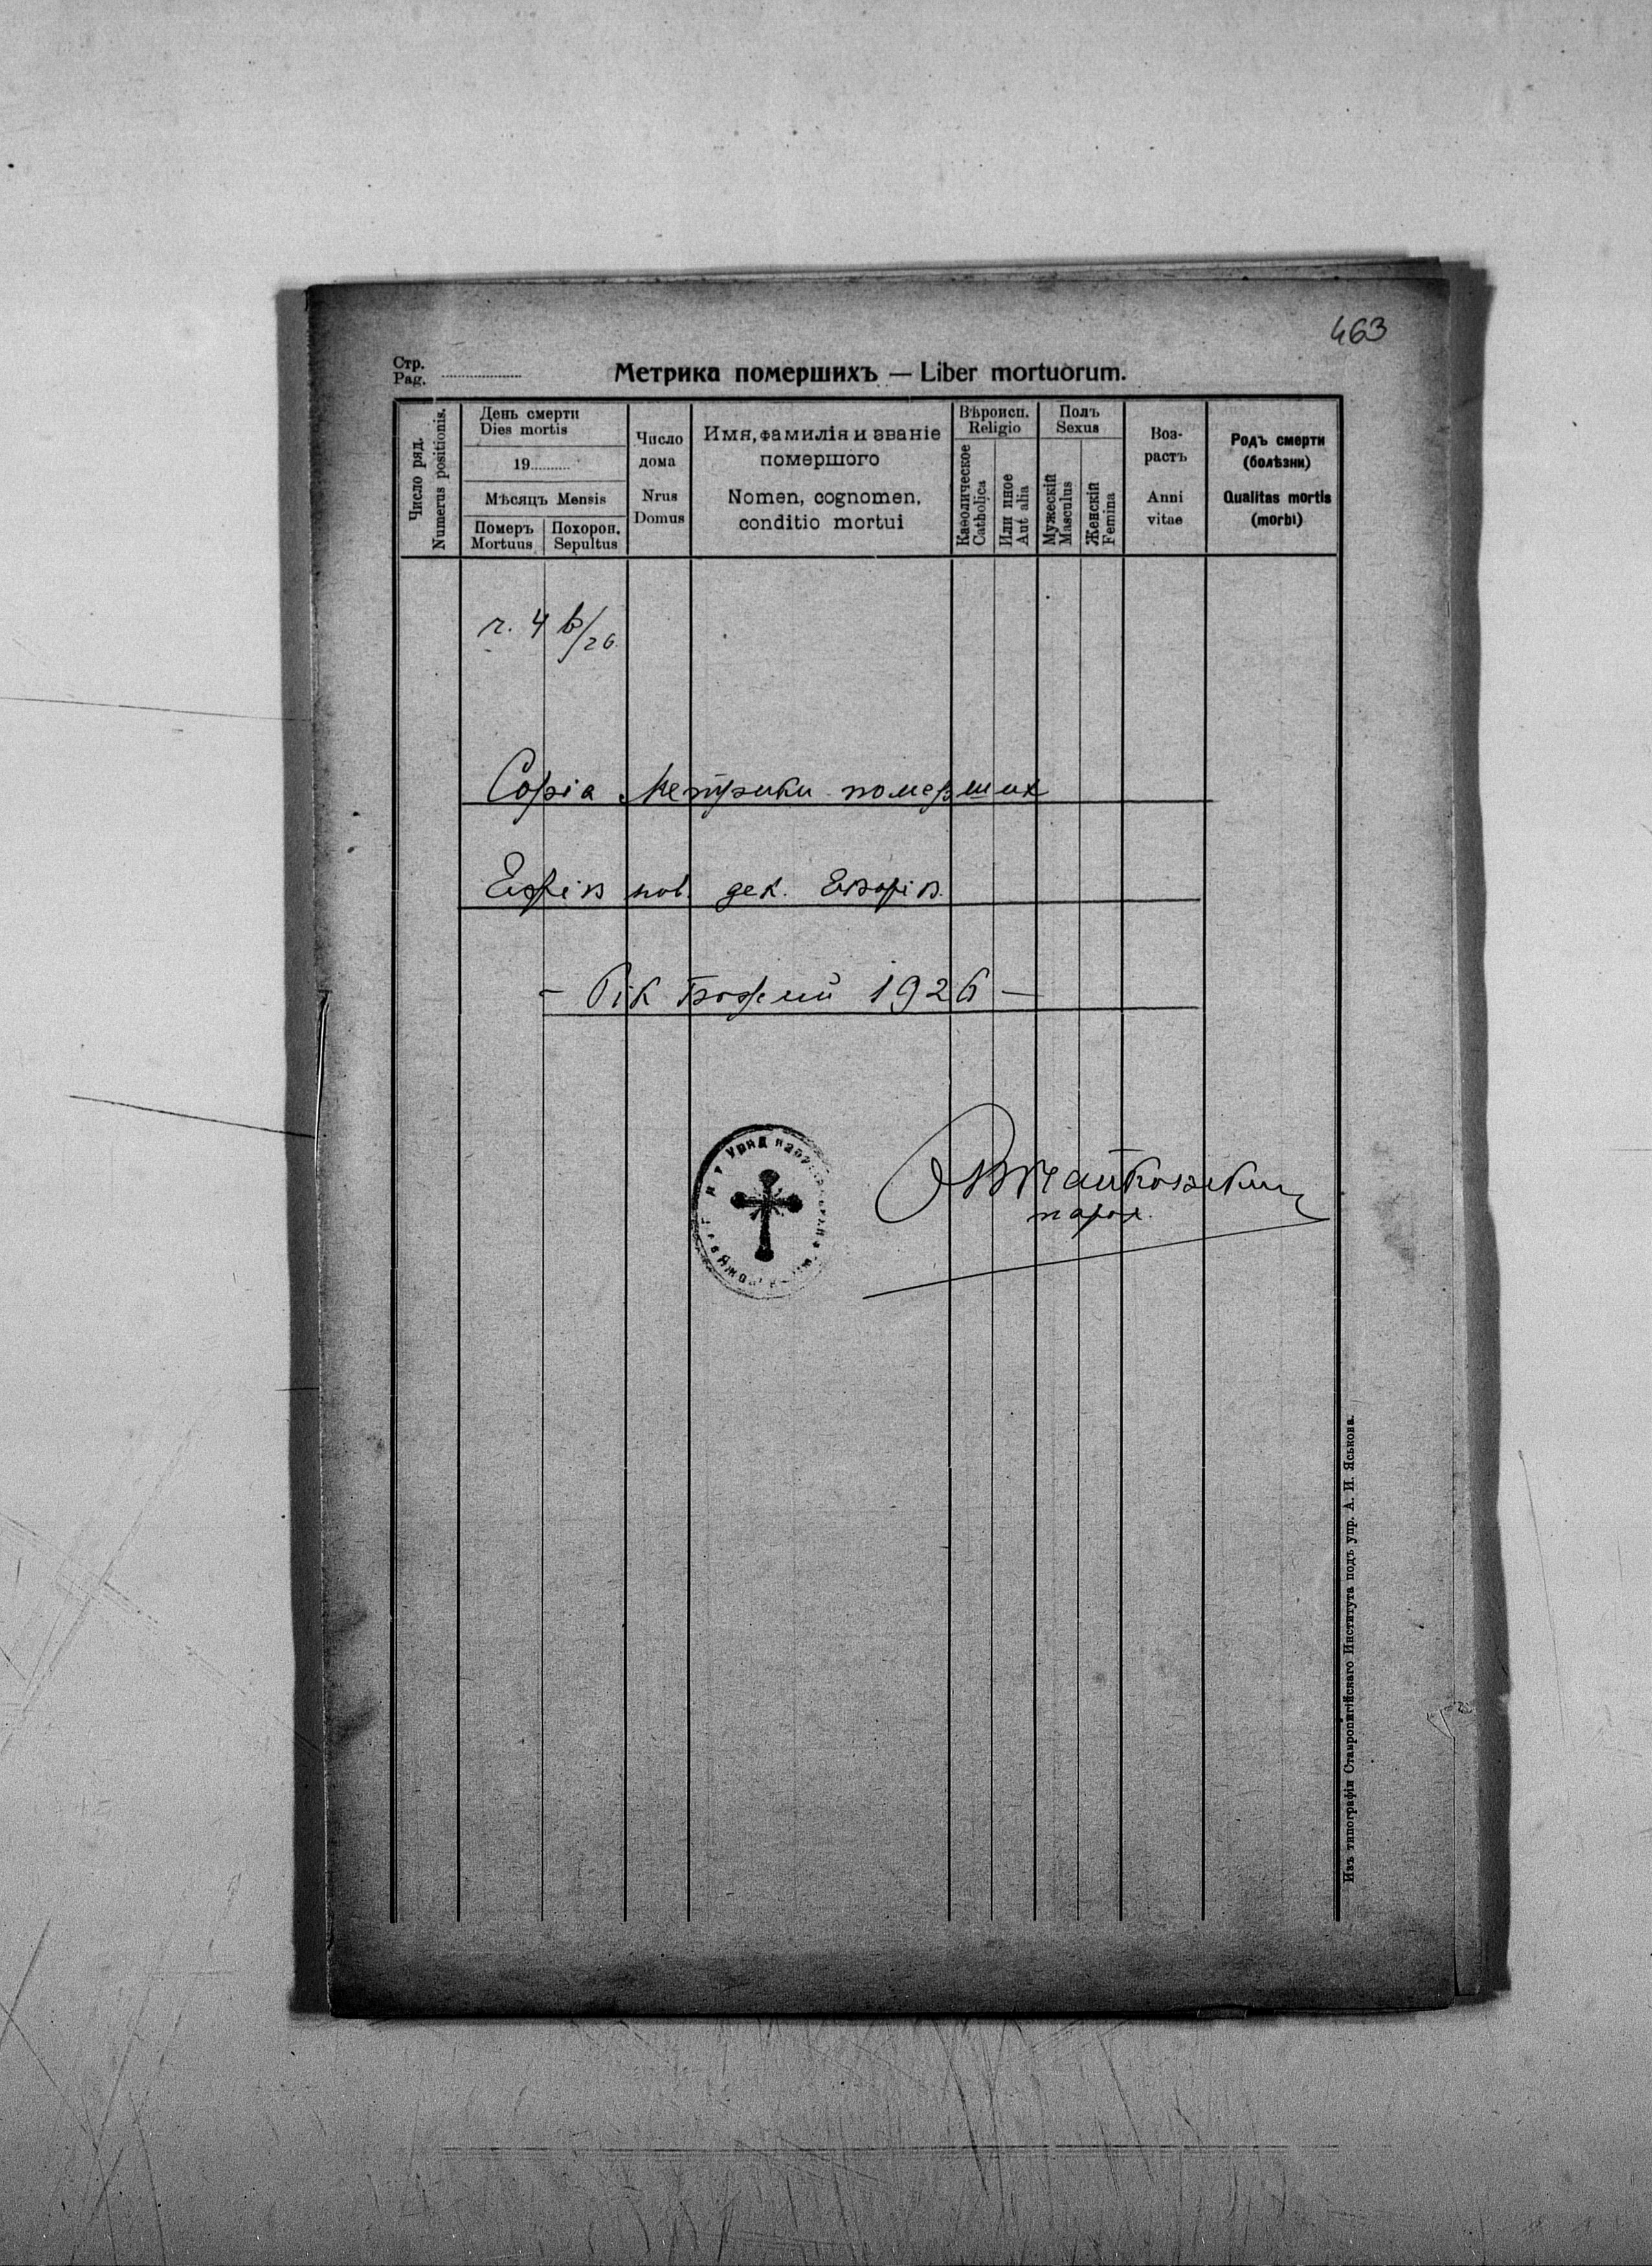 463
Стр.
Pag.
Метрика померших​ъ — Liber mortuorum.
Число ряд.
Numerus positionis.
День смерти
Dies mortis
19
Мѣсяцъ Mensis
Померъ
Mortuus
Похорон.
Sepultus
Число
дома
Nrus
Domus
Имя, фамилія и званіе
помершого
Nomen, cognomen,
conditio mortui
Вѣроисп.
Religio
Каѳолическое
Catholica
Или иное
Aut alia
Полъ
Sexus
Мужескій
Masculus
Женскій
Femina
Воз-
растъ
Anni
vitae
Родъ смерти
(болѣзни)
Qualitas mortis
(morbi)
ч. 4 в/26
Копіа Метрики померших
пов. дек.
- Рік Божий 1926 -
парох.
Уряд
Изъ типографіи Ставропигійскаго Института подъ упр. А. И. Яськова.